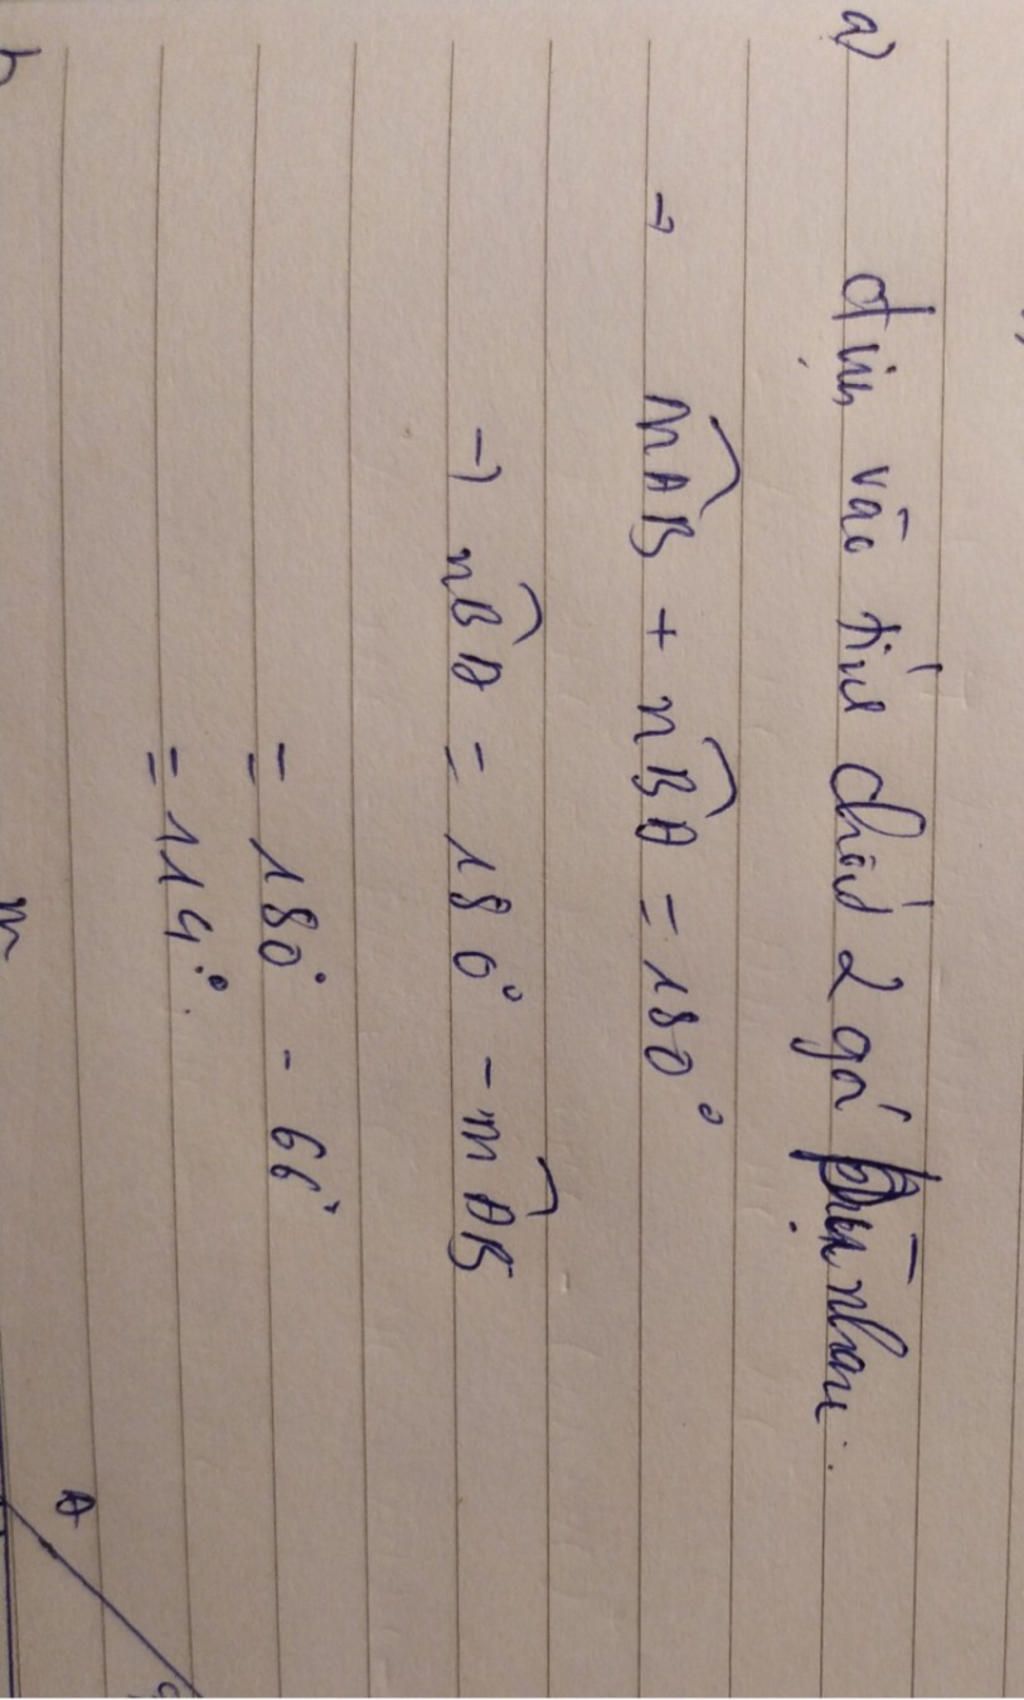 a) dựa vào tính chất 2 góc phụ nhau.
→ mAB + nBA = 180°
→ nBA = 180° - mAB
= 180° - 66°
= 114°.
b
m
A